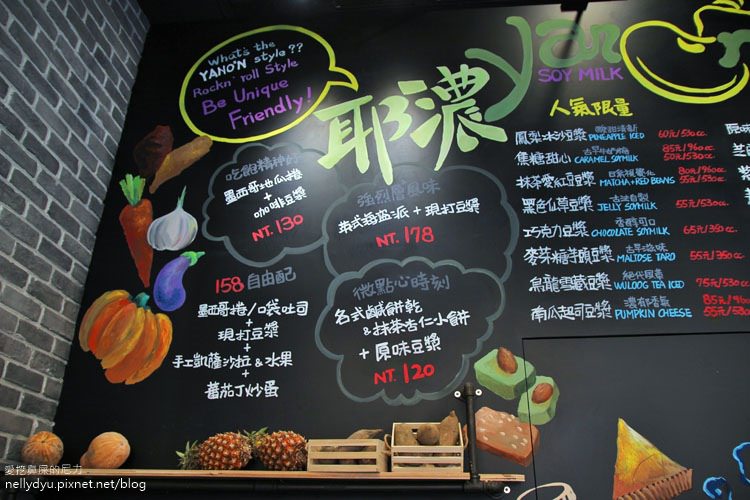 What's the
YANO'N style??
Rockn' roll Style
Be Unique
Friendly!
耶濃
SOY MILK
人氣限量
吃飽精神好
墨西哥地瓜捲
+
咖啡豆漿
NT. 130
強烈層風味
+ 現打豆漿
NT. 178
158 自由配
墨西哥捲/口袋吐司
+
現打豆漿
+
手工凱薩沙拉 & 水果
+
蕃茄丁炒蛋
微點心時刻
各式鹹餅乾
& 抹茶杏仁小餅
+ 原味豆漿
NT. 120
鳳梨冰沙豆漿 PINEAPPLE ICED 60元/530cc.
焦糖甜心 古早牛奶糖 CARAMEL SOYMILK 85元/960cc 50元/530cc.
抹茶愛紅豆豆漿 MATCHA+RED BEANS 80元/960cc 55元/530cc.
黑色仙草豆漿 古法自製 JELLY SOYMILK 55元/530cc.
巧克力豆漿 香醇可口 CHOCOLATE SOYMILK 65元/350cc.
麥芽糖芋頭豆漿 古早滋味 MALTOSE TARO 55元/350cc.
烏龍雪藏豆漿 絕代風華 WULOOG TEA ICED 75元/530cc.
南瓜起司豆漿 濃郁香氣 PUMPKIN CHEESE
愛挖鼻屎的尼力
nellydyu.pixnet.net/blog